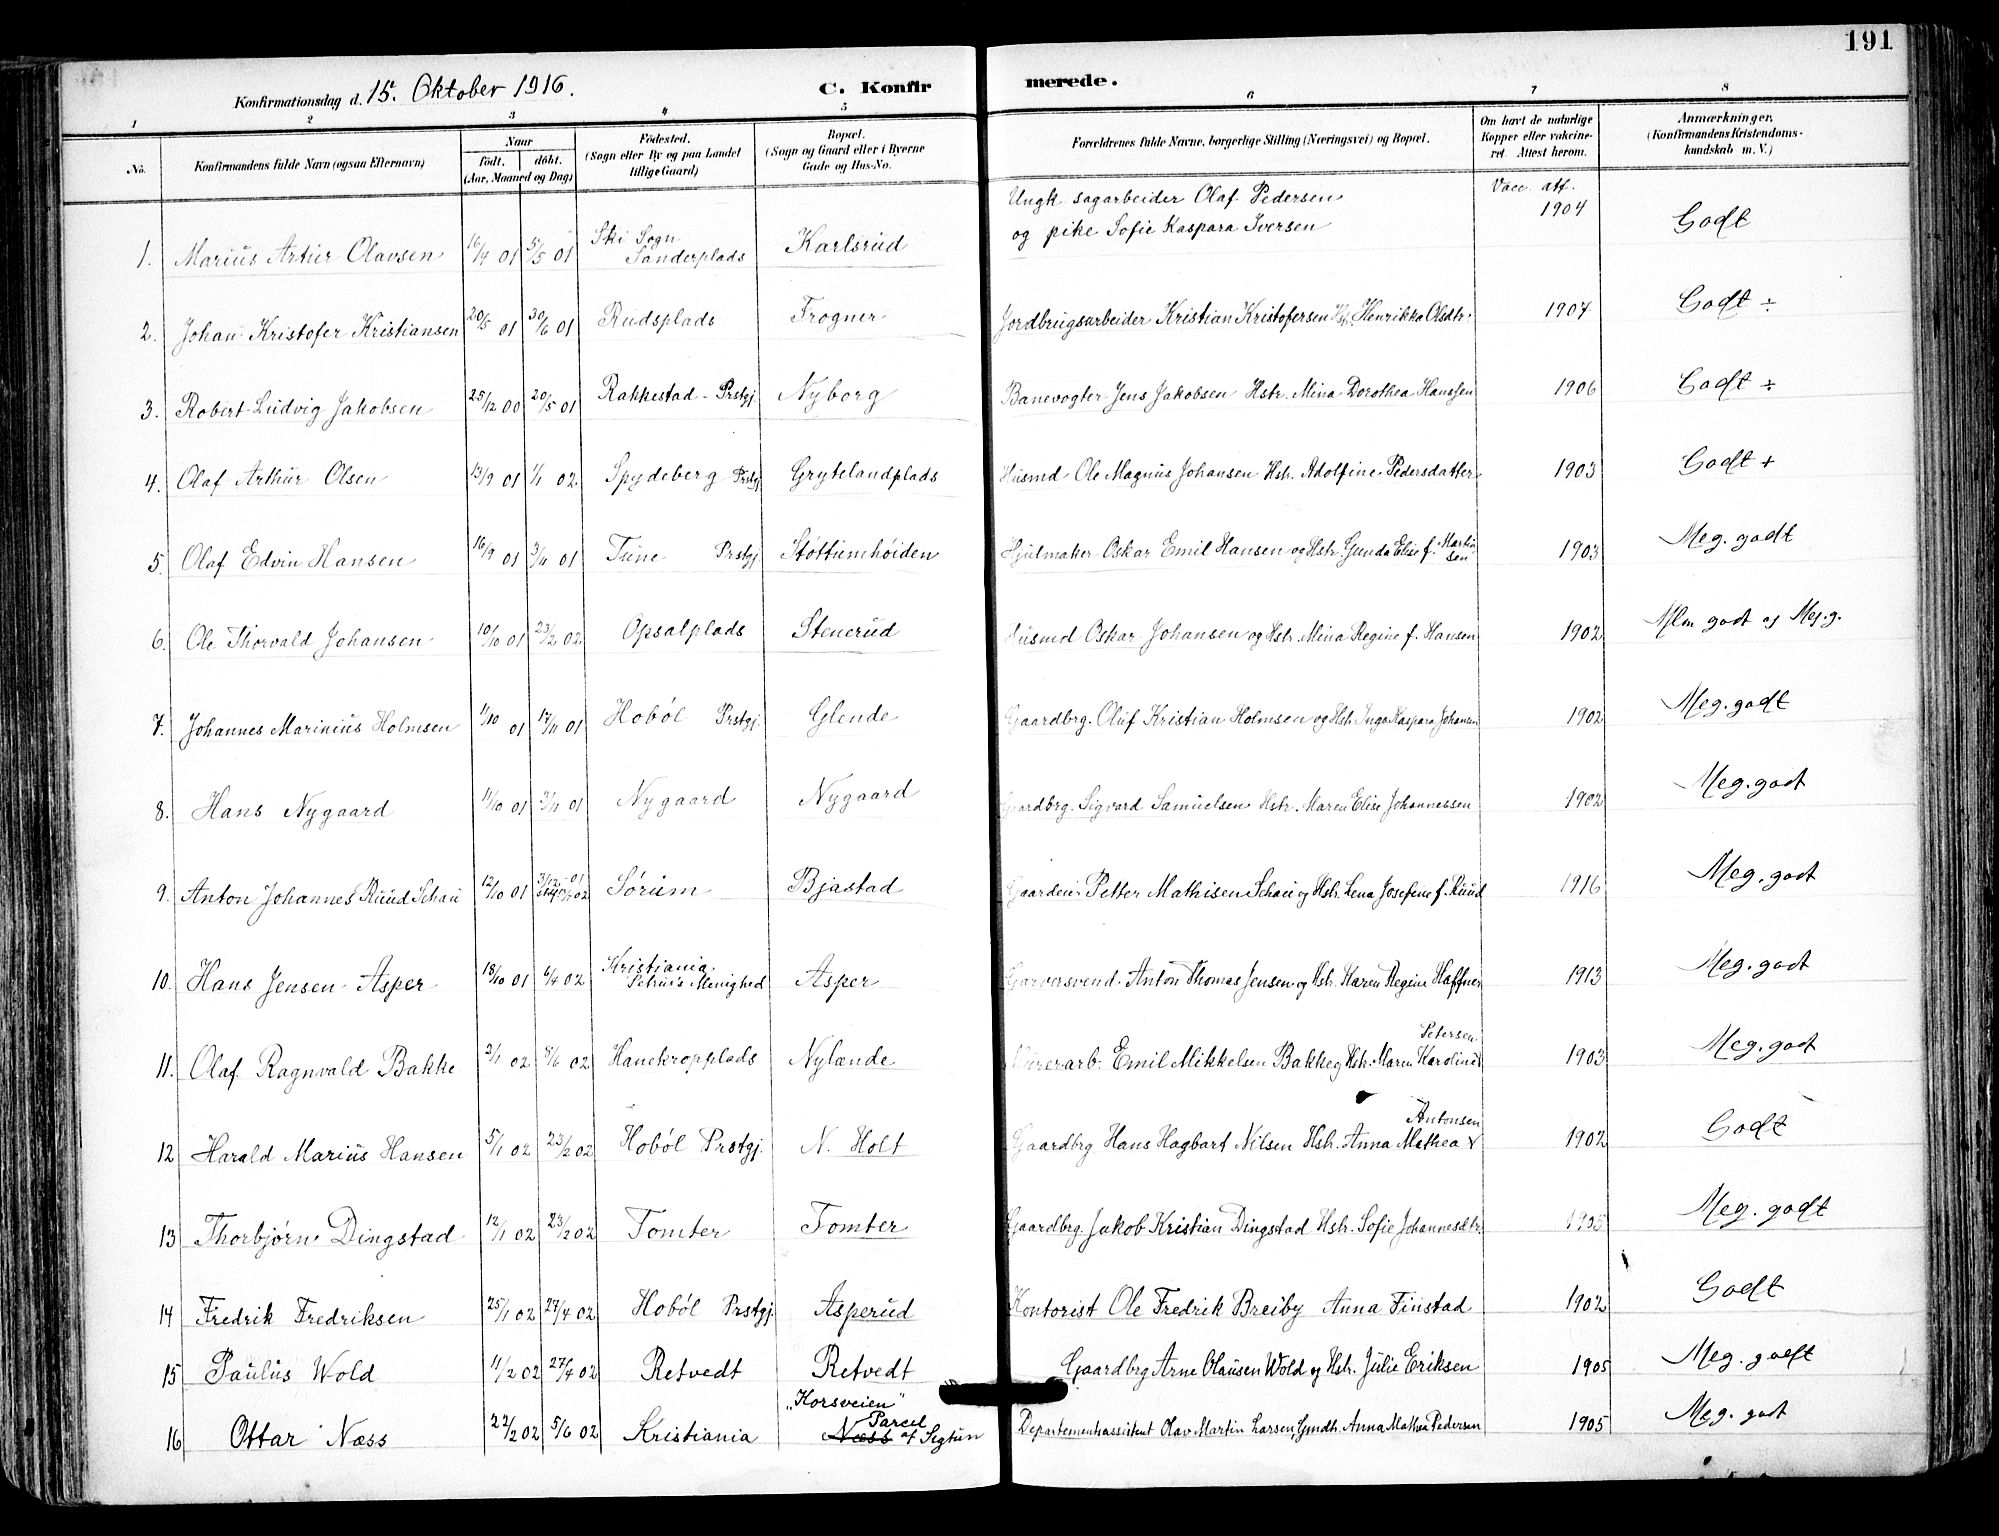 191
Konfirmationsdag d. 15. Oktober 1916.
C. Konfirmerede.
1 2 3 4 5 6 7 8
No.
Konfirmandens fulde Navn (ogsaa Efternavn)
Naar
født. døbt.
(Aar, Maaned og Dag)
Fødested.
(Sogn eller By og paa Landet
tillige Gaard)
Bopæl.
(Sogn og Gaard eller i Byerne
Gade og Hus-No.
Forældrenes fulde Navne, borgerlige Stilling (Næringsvei) og Bopæl.
Om havt de naturlige
Kopper eller vakcine-
ret. Attest herom.
Anmærkninger.
(Konfirmandens Kristendoms-
kundskab m. V.)
1. Marius Artur Olavsen 16/4 01 5/5 01 Ski Sogn Sanderplads Karlsrud Ungk. sagarbeider Olaf Pedersen og pike Sofie Kaspara Iversen Vacc. att. 1904 Godt
2. Johan Kristofer Kristiansen 20/5 01 30/6 01 Rudsplads Frogner Jordbrugsarbeider Kristian Kristofersen Hstr. Henrikka Olsdtr. 1907 Godt ÷
3. Robert Ludvig Jakobsen 25/12 00 20/5 01 Rakkestad Prstgj. Nyborg Banevogter Jens Jakobsen Hstr. Mina Dorothea Hanssen 1906 Godt ÷
4. Olaf Arthur Olsen 13/9 01 1/1 02 Spydeberg Prstgj. Grytelandplads Husmd Ole Magnus Johansen Hstr. Adolfine Pedersdatter 1903 Godt +
5. Olaf Edvin Hansen 16/9 01 3/11 01 Tune Prstgj. Støttumhøiden Hjulmaker Oskar Emil Hansen og Hstr. Gunda Elise f. Martinsen 1903 Meg. godt
6. Ole Thorvald Johansen 10/10 01 23/2 02 Opsalplads Stenerud Husmd Oskar Johansen og Hstr. Mina Regine f. Hansen 1902 Mlm godt og Meg. g.
7. Johannes Marinius Holmsen 11/10 01 17/11 01 Hobøl Prstgj. Glende Gaardbrg. Oluf Kristian Holmsen og Hstr. Inga Kaspara Johansen 1902 Meg. godt
8. Hans Nygaard 11/10 01 3/11 01 Nygaard Nygaard Gaardbrg. Sigvard Samuelsen Hstr. Maren Elise Johannessen 1902 Meg. godt
9. Anton Johannes Ruud Schau 12/10 01 3/12 -01 Sørum Bjastad Gaardeier Petter Mathisen Schau og Hstr. Lena Josefine f. Ruud 1916 Meg. godt
10. Hans Jensen Asper 18/10 01 6/4 02 Kristiania Petrus's Menighed Asper Garversvend Anton Thomas Jensen og Hstr. Karen Regine Haffner 1913 Meg. godt
11. Olaf Ragnvald Bakke 2/1 02 8/6 02 Hanekropplads Nylænde Emil Mikkelsen Bakke og Hstr. Maren Karoline Petersen 1903 Meg. godt
12 Harald Marius Hansen 5/1 02 23/2 02 Hobøl Prstgj. N. Holt Gaardbrg Hans Hagbart Nilsen Hstr. Anna Mathea Antonsen 1902 Godt
13 Thorbjørn Dingstad 12/1 02 23/2 02 Tomter Tomter Gaardbrg. Jakob Kristian Dingstad Hstr. Sofie Johannesdtr. 1905 Meg. godt
14 Fredrik Fredriksen 25/1 02 27/4 02 Hobøl Prstgj. Asperud Kontorist Ole Fredrik Breiby Anna Finstad 1902 Godt
15 Paulus Wold 11/2 02 27/4 02 Retvedt Retvedt Gaardbrg Arne Olausen Wold og Hstr. Julie Eriksen 1905 Meg. godt
16 Ottar Næss 22/2 02 5/6 02 Kristiania "Korsveien" Parcel Næss af Sigtun Departementsassistent Olav Martin Larsen, Gmdh. Anna Mathea Pedersen 1905 Meg. godt